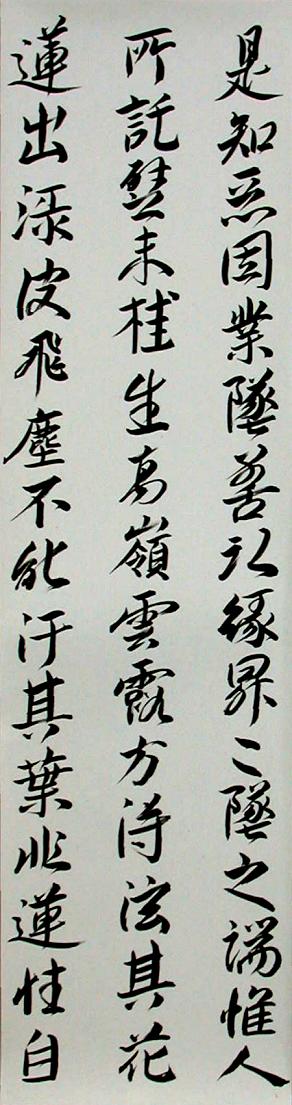 是知惡因業墜善以緣昇〻墜之端惟人
所託譬夫桂生高嶺雲露方得泫其花
蓮出淥波飛塵不能汙其葉非蓮性自